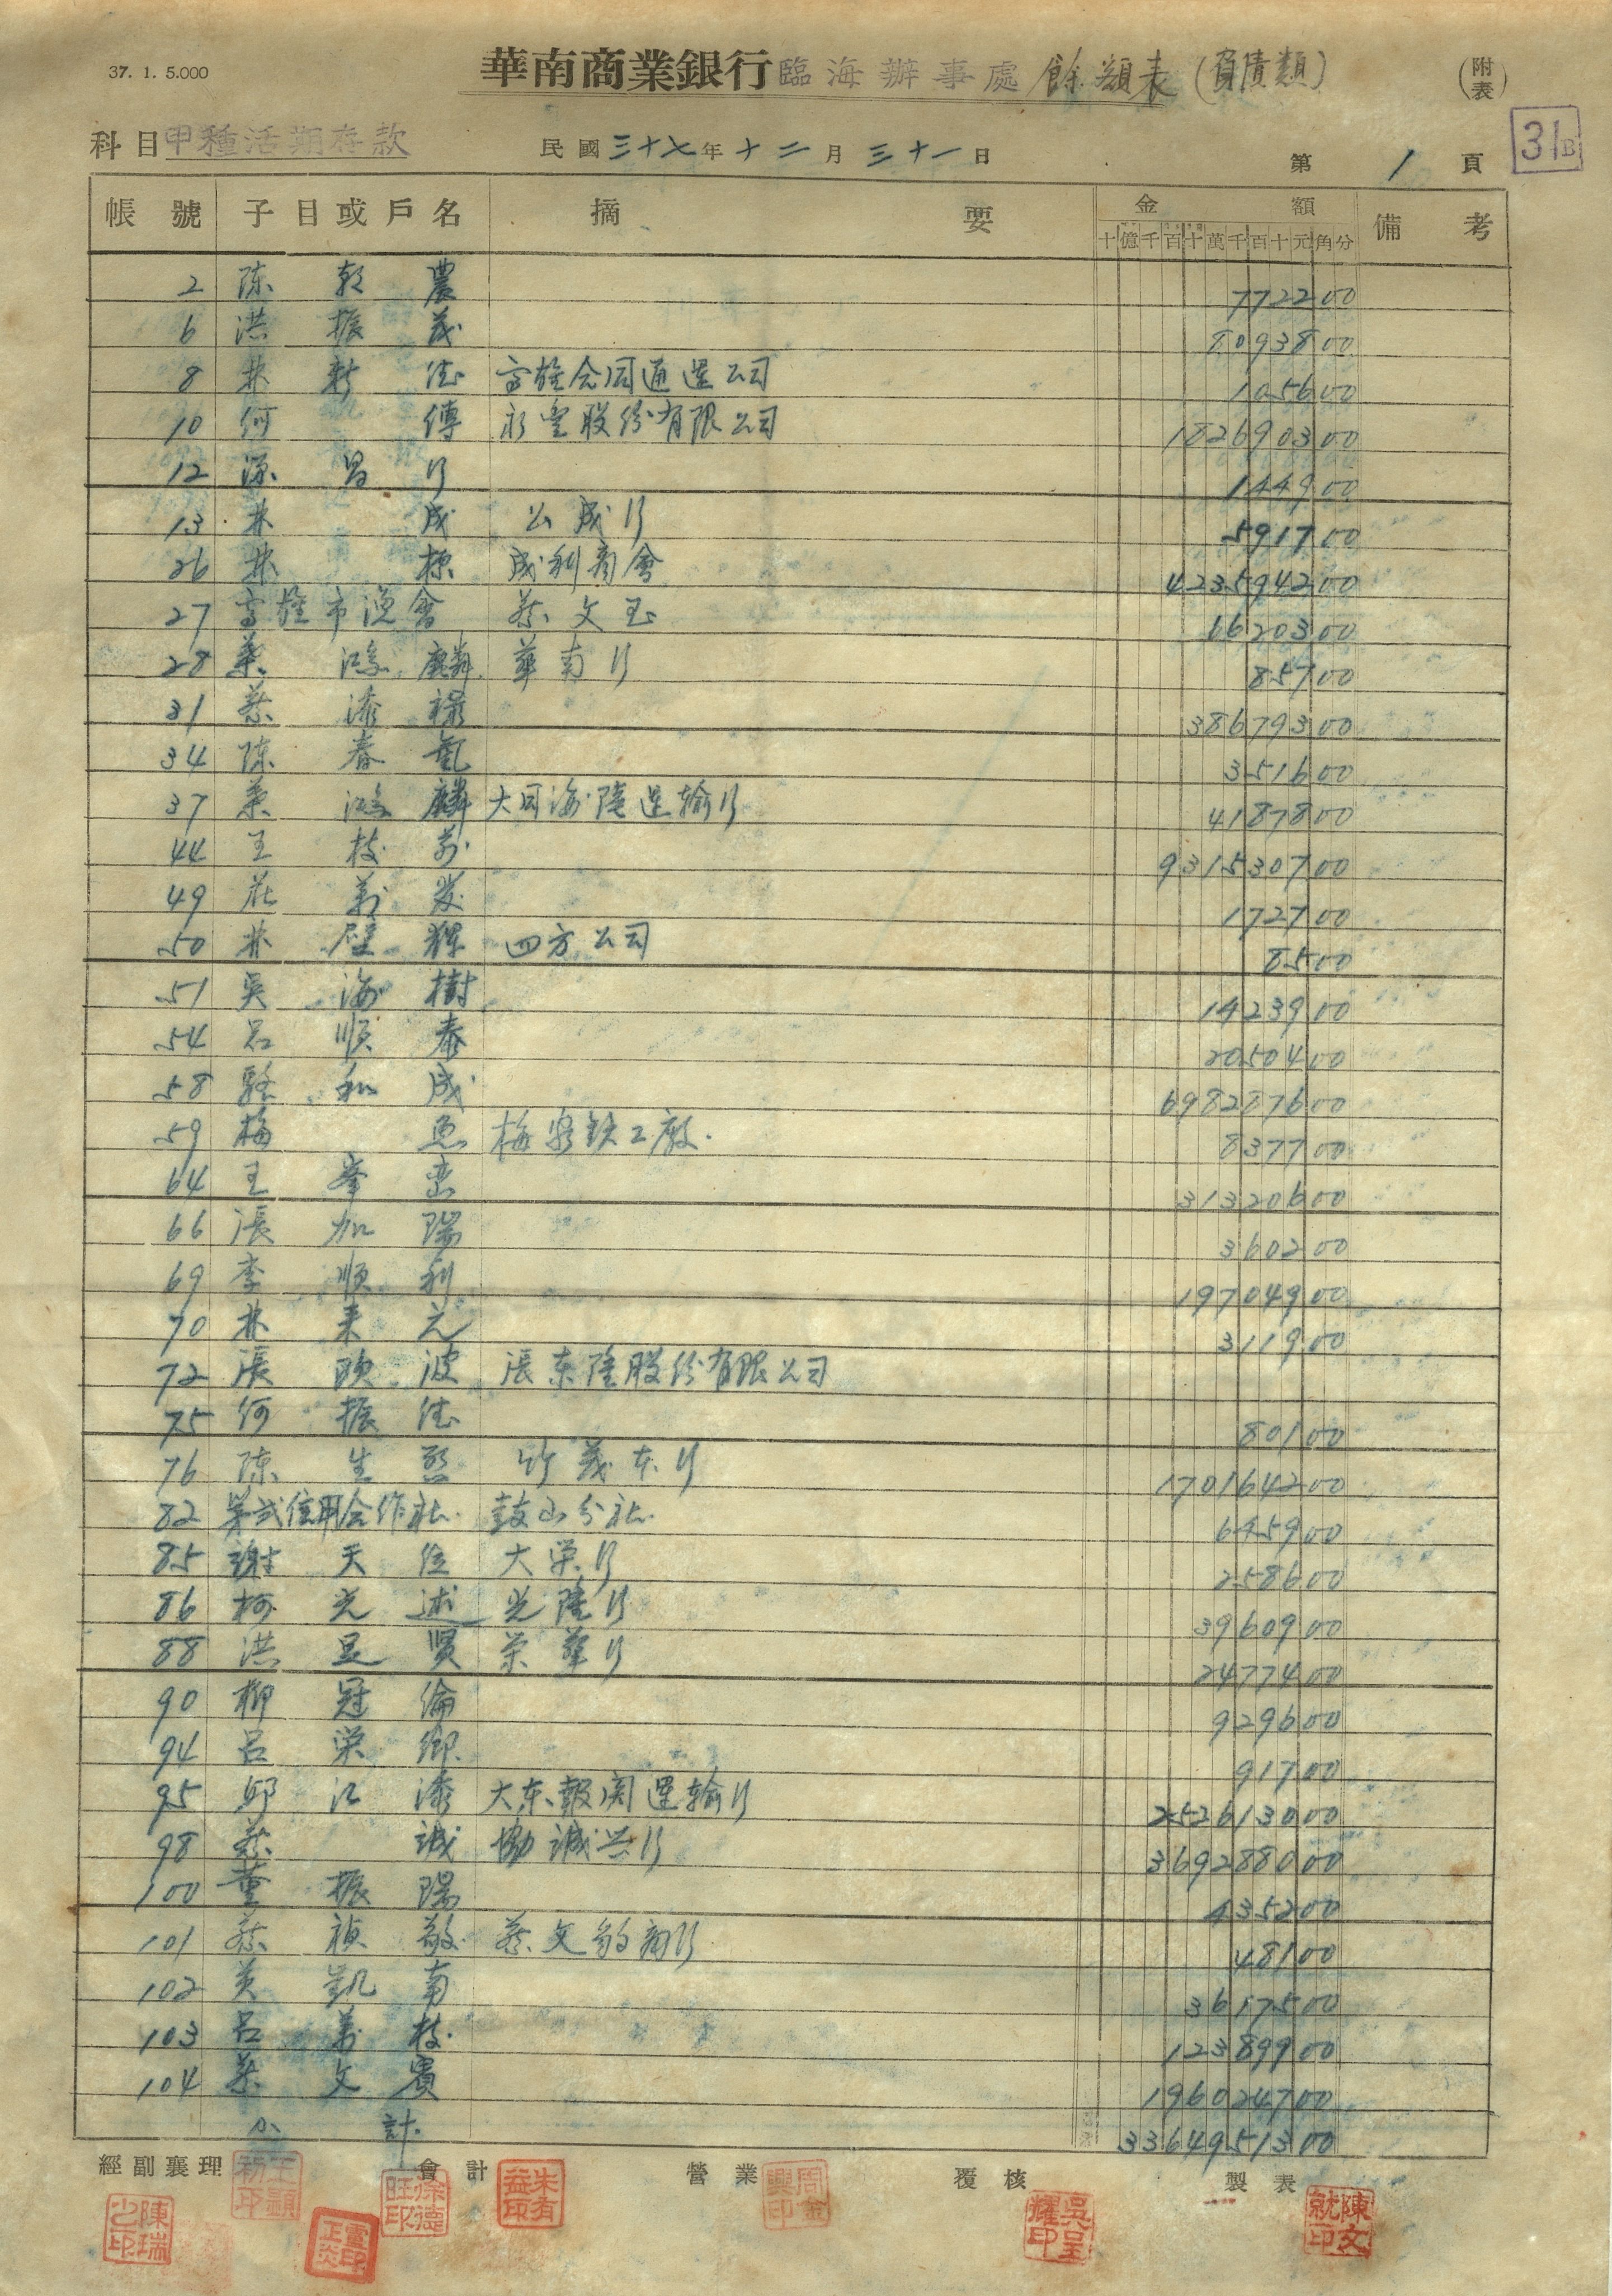 37. 1. 5.000
華南商業銀行臨海辦事處餘額表(負債類)
(附表)
31B
科目甲種活期存款 民國三十七年十二月三十一日 第1頁
帳號 子目或戶名 摘要 金額 備考
十億千百十萬千百十元角分
2 陈 乾 農 7722 00
6 洪 振 茂 80938 00
8 林 新 徳 高雄合同通運公司 1056 00
10 何 傳 永豐股份有限公司 1826903 00
12 源 昌 行 1449 00
13 林 成 公成行 5917 00
26 林 標 成利商會 4235942 00
27 高雄市漁會 蔡文玉 66203 00
28 葉 鴻 麟 華南行 857 00
31 蔡 添 禄 386793 00
34 陈 春 3516 00
37 葉 鴻 麟 大同海陸運輸行 41878 00
44 王 枝 9315307 00
49 莊 萬 发 1727 00
50 林 壁 輝 四方公司 85 00
51 吳 海 樹 14239 00
54 呂 順 泰 20504 00
58 駱 和 成 6982876 00
59 梅 梅泉鉄工廠. 8377 00
64 王 峯 313206 00
66 張 加 瑞 3602 00
69 李 順 利 197049 00
70 林 来 元 3119 00
72 張 波 張东隆股份有限公司
75 何 振 徳 801 00
76 陈 生 竹茂本行 1701642 00
82 第弍信用合作社. 鼓山分社. 6459 00
85 謝 天 位 大栄行 2586 00
86 柯 光 述 光陸行 39609 00
88 洪 昆 賢 栄華行 24774 00
90 柳 冠 倫 9296 00
94 呂 栄 卿 917 00
95 邱 江 漆 大东報関運輸行 2526130 00
98 蔡 誠 協誠兴行 3692880 00
100 董 振 瑞 4352 00
101 蔡 禎 敬 蔡文敏商行 481 00
102 黄 凱 南 36175 00
103 呂 萬 枝 123899 00
104 葉 文 賓 1960247 00
小計. 33649513 00
經副襄理 會計 營業 覆核 製表
陳瑞
朱有益印
周金興印
陳文就印